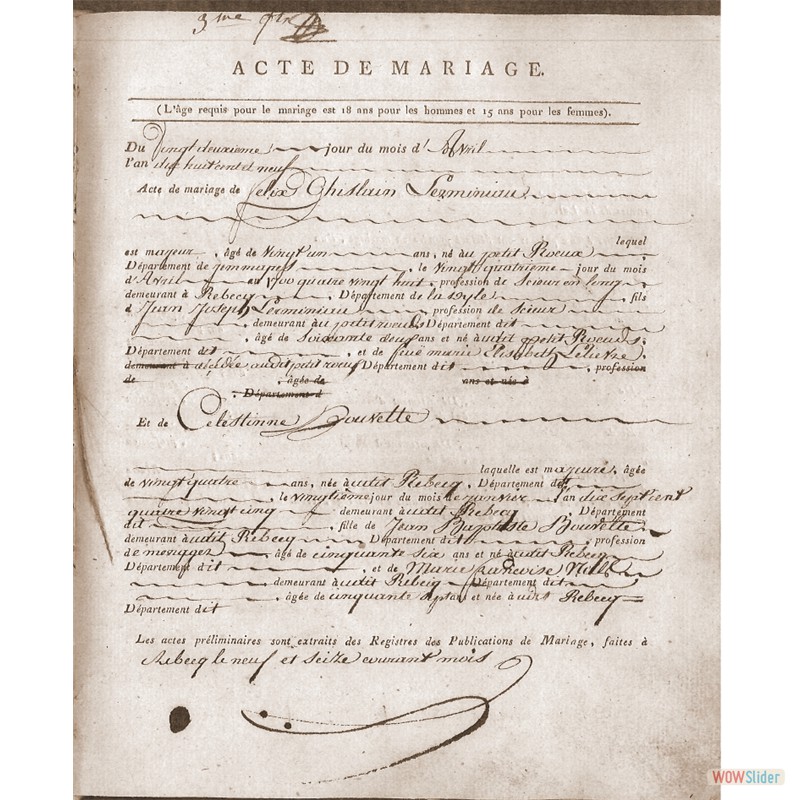 3me
ACTE DE MARIAGE.
(L'âge requis pour le mariage est 18 ans pour les hommes et 15 ans pour les femmes).
Du Vingt deuxieme jour du mois d'Avril
l'an dix huit cent et neuf
Acte de mariage de felix Ghislain Lerminiau
lequel
est majeur, âgé de vingt un ans, né au petit Roeux
Département de jemmapes, le vingt quatrieme jour du mois
d'Avril an 1700 quatre vingt huit, profession de Scieur en long,
demeurant à Rebecq, Département de la Dyle, fils
d Jean Joseph Lerminiau, profession de Scieur
, demeurant au petit roeulx Département dit
, âgé de Soixante deux ans et né audit petit Roeulx,
Département dit, et de feüe marie Elisabeth Leliévre,
demeurant à décédée audit petit roeux Département dit, profession
de âgée de ans et née à
Département d
Et de Celéstinne Bouvette
laquelle est majeure, âgée
de vingt quatre ans, née audit Rebecq, Département dit
, le vingtieme jour du mois de janvier l'an dix Sept cent
quatre vingt cinq demeurant audit Rebecq, Département
dit, fille de Jean Baptiste Bouvette
demeurant audit Rebecq Département dit, profession
de menager, âgé de cinquante Six ans et né audit Rebecq
Département dit, et de Marie
demeurant audit Rebecq Département dit
, âgée de cinquante Sept ans et née audit Rebecq
Département dit
Les actes préliminaires sont extraits des Registres des Publications de Mariage, faites à
Rebecq le neuf et Seize courant mois
WOWSlider